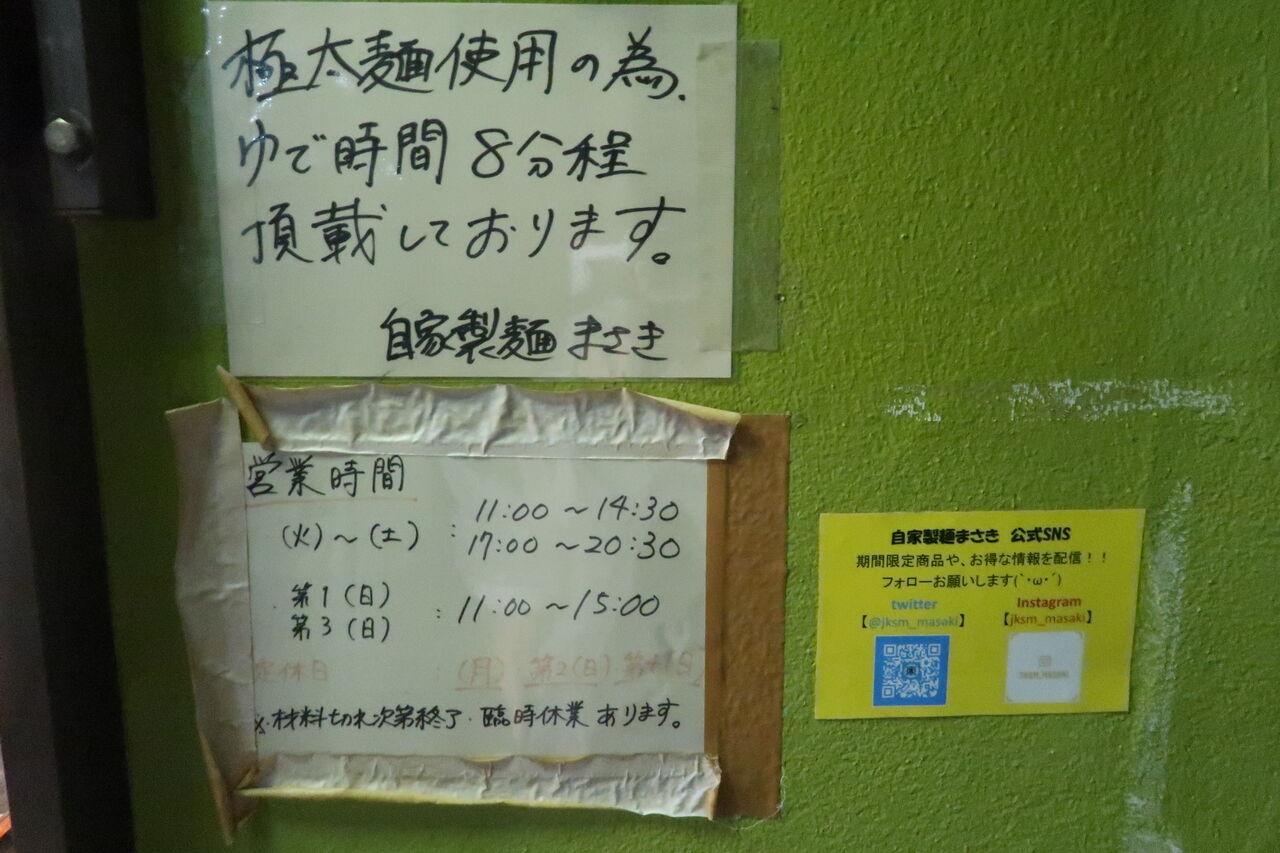 極太麺使用の為、
ゆで時間 8分程
頂載しております。
自家製麺 まさき
営業時間
(火)～(土) : 11:00 ～14:30
17:00 ～20:30
第1(日)
第3(日) : 11:00 ～15:00
定休日 : (月) 第2(日) 第4(日)
※材料切れ次第終了・臨時休業 あります。
自家製麺まさき 公式SNS
期間限定商品や、お得な情報を配信！！
フォローお願いします(`･ω･´)
twitter Instagram
【@jksm_masaki】 【jksm_masaki】